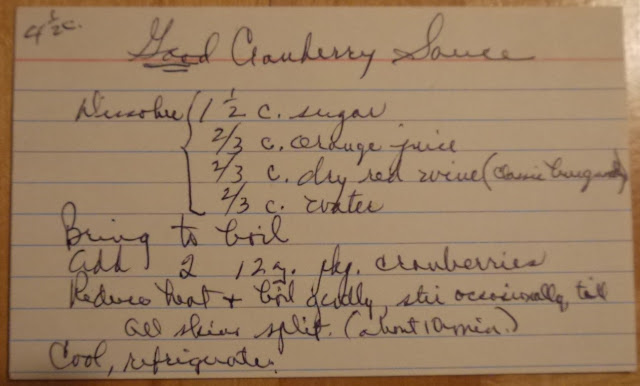 4 1/2 c.
Good Cranberry Sauce
Dissolve { 1 1/2 c. sugar
2/3 c. orange juice
2/3 c. dry red wine (classic burgundy)
2/3 c. water
Bring to boil
Add 2 12 oz. pkg. cranberries
Reduce heat + boil gently, stir occasionally, till
all skins split. (about 10 min.)
Cool, refrigerate.